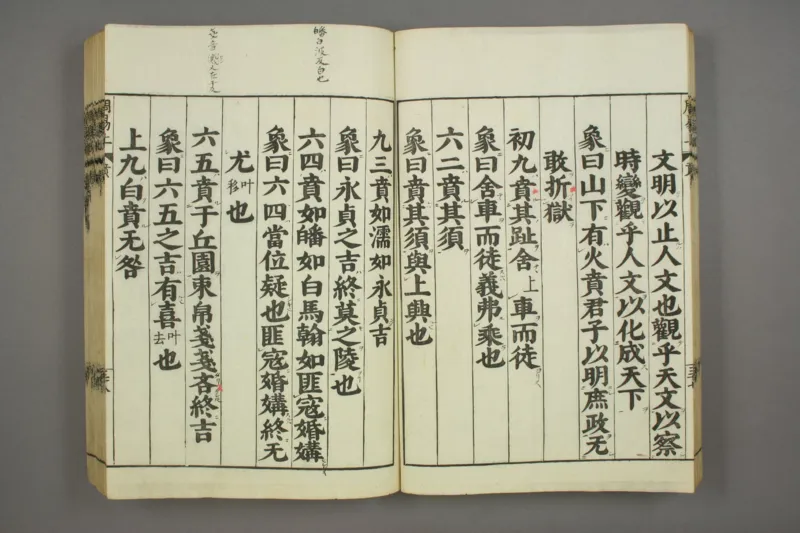 文明以止人文也觀乎天文以察
時變觀乎人文以化成天下
象曰山下有火賁君子以明庶政无
敢折獄
初九賁其趾舍上車而徒
象曰舍車而徒義弗乘也
六二賁其須
象曰賁其須與上興也
九三賁如濡如永貞吉
象曰永貞之吉終莫之陵也
六四賁如皤如白馬翰如匪寇婚媾
象曰六四當位疑也匪寇婚媾終无
尤叶移也
六五賁于丘園束帛戔戔吝終吉
象曰六五之吉有喜叶去也
上九白賁无咎
周易上 賁